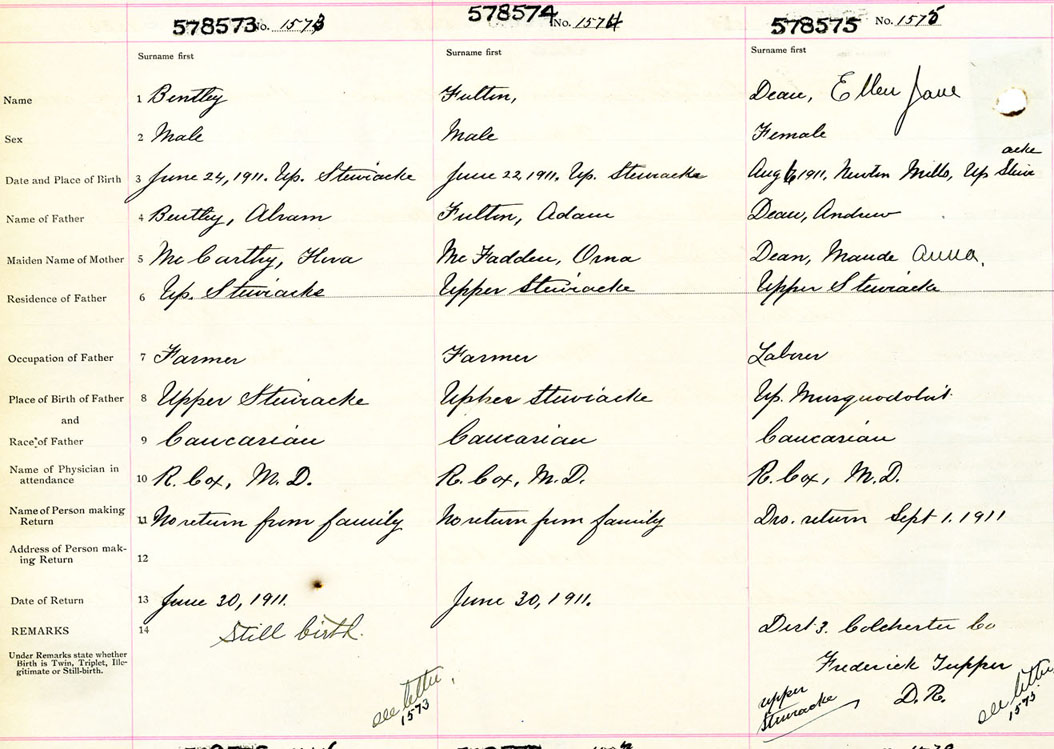 578573 No. 1573
578574 No. 1574
578575 No. 1575
Surname first Surname first Surname first
Name 1 Bentley Fulton, Dean, Ellen Jane
Sex 2 Male Male Female
acke
Date and Place of Birth 3 June 24, 1911. Up. Stewiacke June 22, 1911. Up. Stewiacke Aug 6 1911, Newton Mills, Up Stewi
Name of Father 4 Bentley, Abram Fulton, Adam Dean, Andrew
Maiden Name of Mother 5 McCarthy, Mc Fadden, Orna Dean, Maude Anna,
Residence of Father 6 Up. Stewiacke Upper Stewiacke Upper Stewiacke
Occupation of Father 7 Farmer Farmer Laborer
Place of Birth of Father 8 Upper Stewiacke Upper Stewiacke Up. Musquodoboit
and
Race of Father 9 Caucasian Caucasian Caucasian
Name of Physician in
attendance 10 R. Cox, M.D. R. Cox, M.D. R. Cox, M.D.
Name of Person making
Return 11 No return from family No return from family Drs. return Sept 1. 1911
Address of Person mak-
ing Return 12
Date of Return 13 June 30, 1911. June 30, 1911.
REMARKS 14 Still birth. Dist 3. Colchester Co
Under Remarks state whether
Birth is Twin, Triplet, Ille-
gitimate or Still-birth.
Frederick Tupper
D.R.
upper
Stewiacke
see letter,
1573
see letter
1573